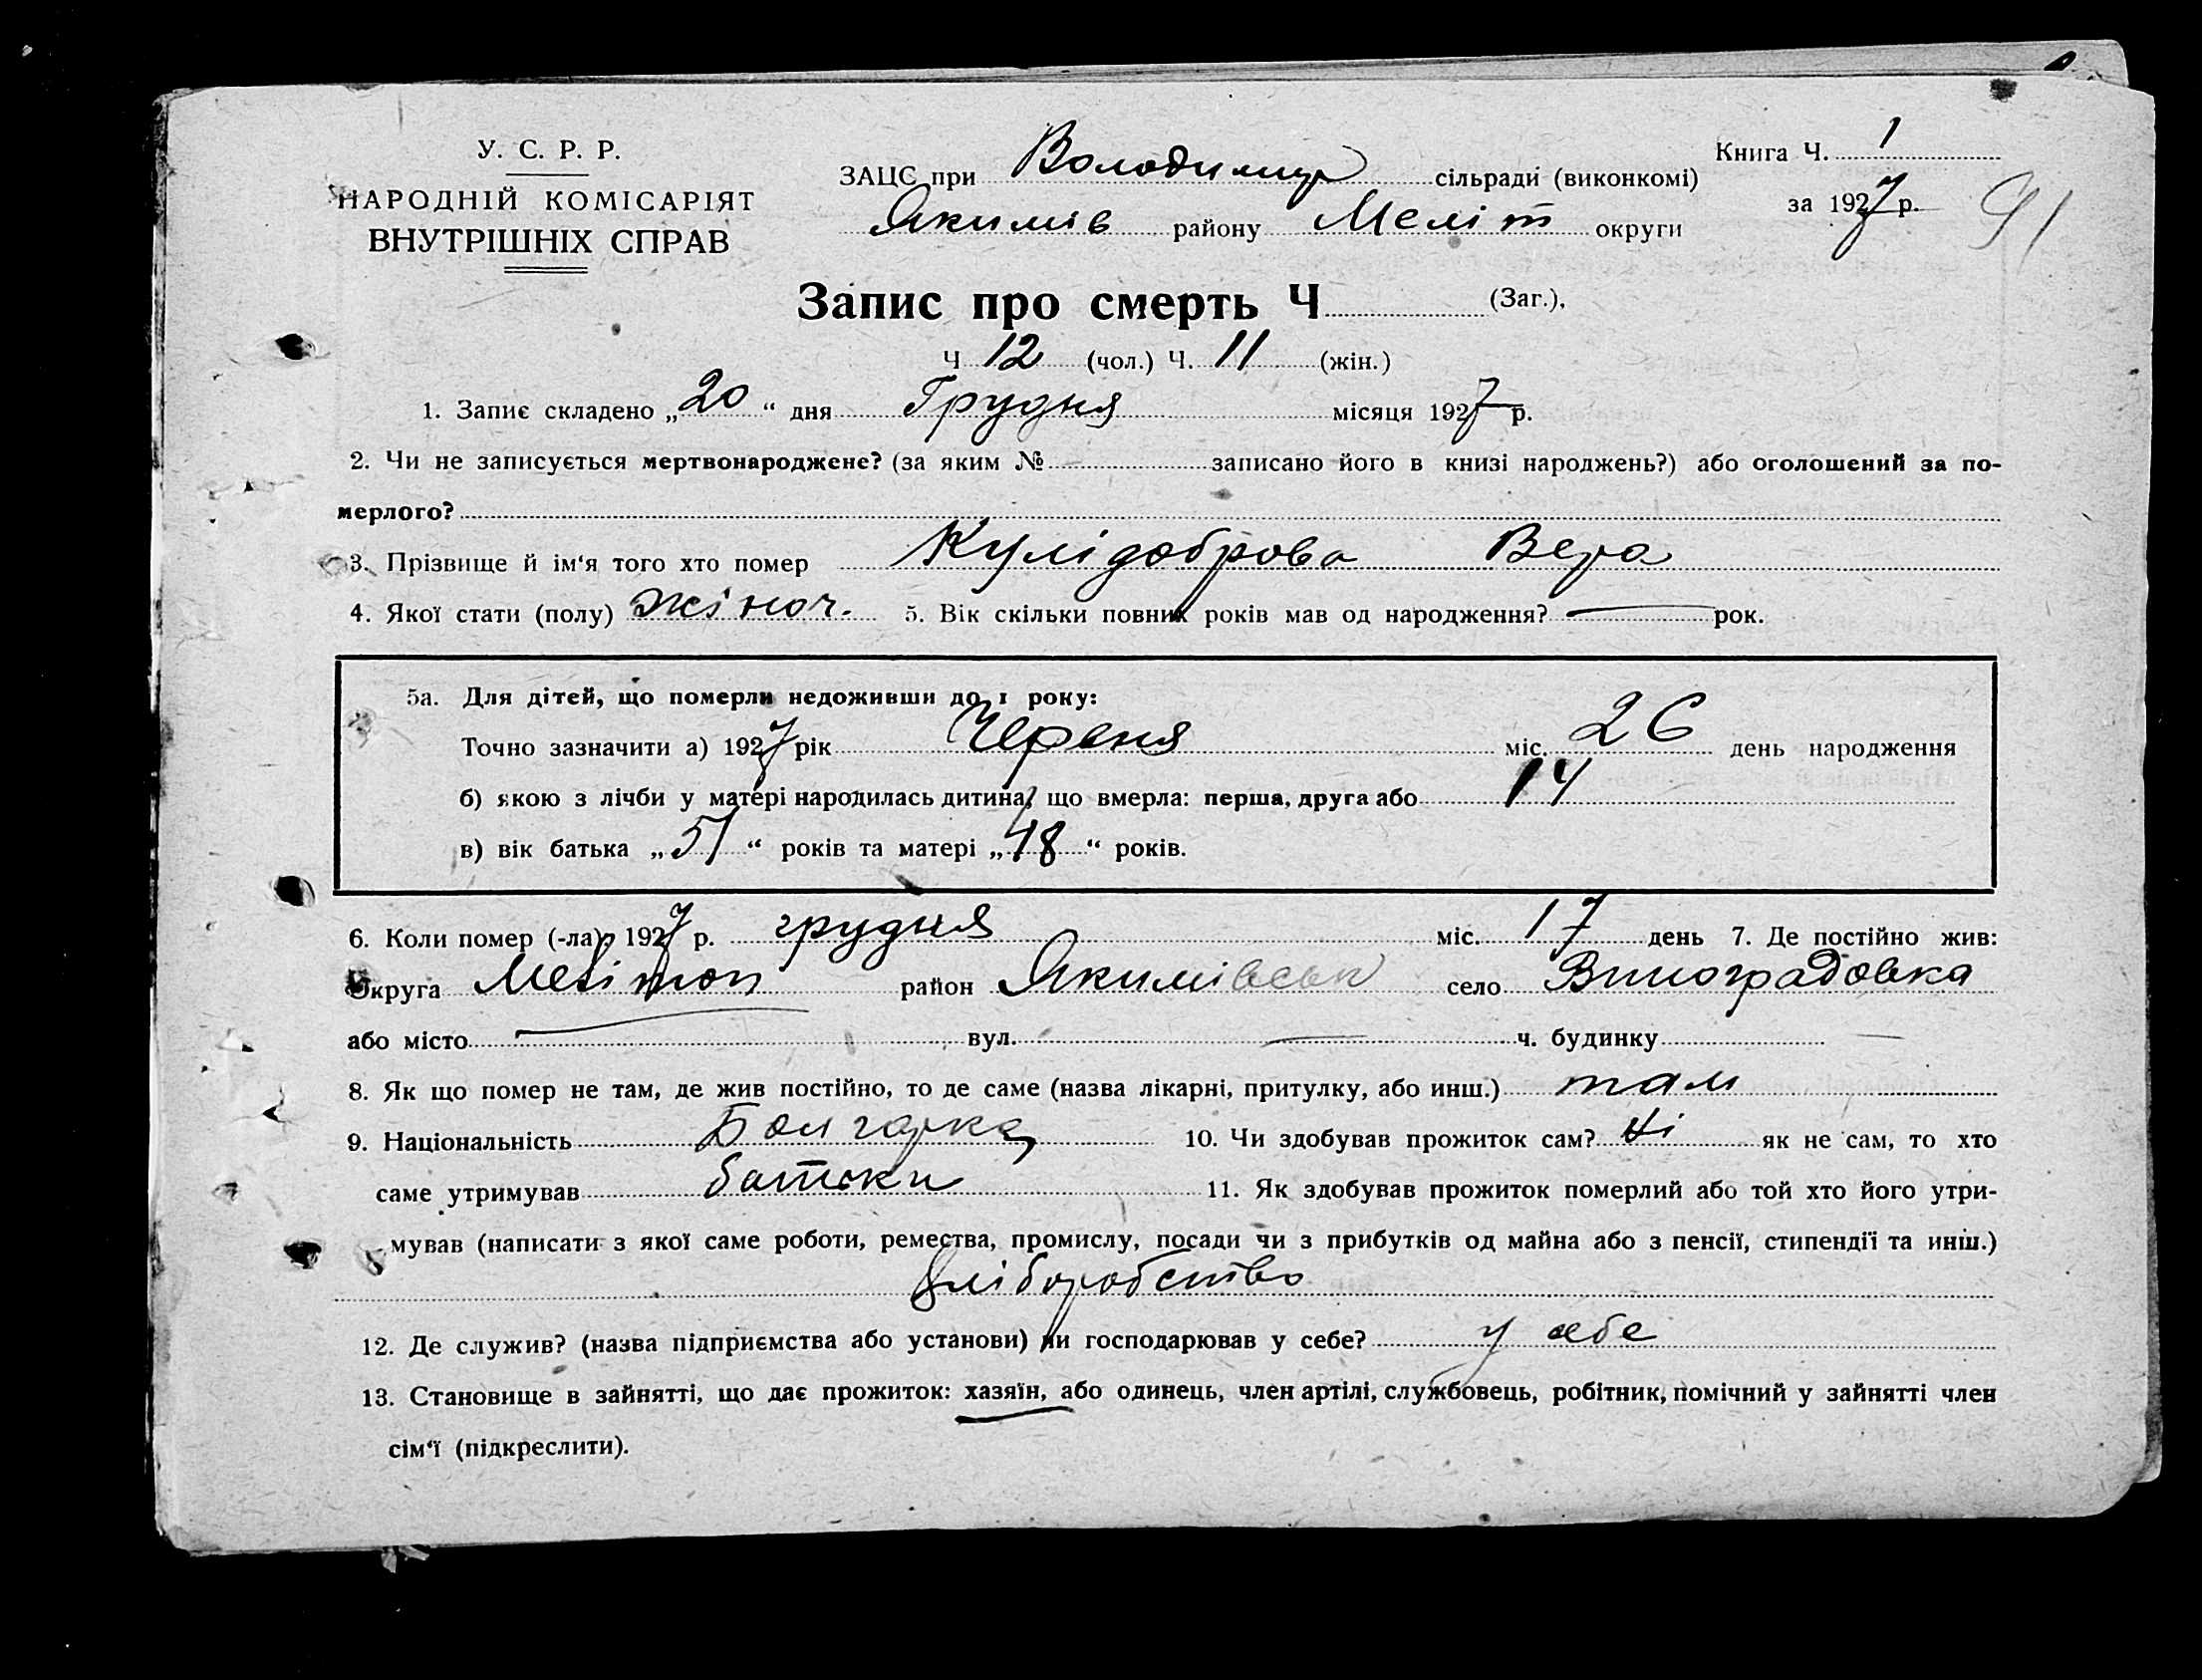 У. С. Р. Р.
НАРОДНІЙ КОМІСАРІЯТ
ВНУТРІШНІХ СПРАВ
ЗАЦС при Володимир сільради (виконкомі)
Якимів району Меліт округи
Книга Ч. 1
за 1927 р.
91
Запис про смерть Ч (Заг.),
Ч 12 (чол.) Ч. 11 (жін.)
1. Запис складено „20“ дня Грудня місяця 1927 р.
2. Чи не записується мертвонароджене? (за яким № записано його в книзі народжень?) або оголошений за по-
мерлого?
3. Прізвище й ім‘я того хто помер Кулідоброва Вера
4. Якої стати (полу) жіноч. 5. Вік скільки повних років мав од народження? — рок.
5а. Для дітей, що померли недоживши до 1 року:
Точно зазначити а) 1927 рік Червня міс. 26 день народження
б) якою з лічби у матері народилась дитина, що вмерла: перша, друга або 14
в) вік батька „51“ років та матері „48“ років.
6. Коли помер (-ла)? 1927 р. грудня міс. 17 день 7. Де постійно жив:
Округа Мелітоп район Якимівськ село Виноградовка
або місто — вул. — ч. будинку —
8. Як що помер не там, де жив постійно, то де саме (назва лікарні, притулку, або инш.) там
9. Національність Болгарка 10. Чи здобував прожиток сам? ні як не сам, то хто
саме утримував батьки 11. Як здобував прожиток померлий або той хто його утри-
мував (написати з якої саме роботи, ремества, промислу, посади чи з прибутків од майна або з пенсії, стипендії та инш.)
хліборобство
12. Де служив? (назва підприємства або установи) чи господарював у себе? у себе
13. Становище в зайнятті, що дає прожиток: хазяїн, або одинець, член артілі, службовець, робітник, помічний у зайнятті член
сім‘ї (підкреслити).